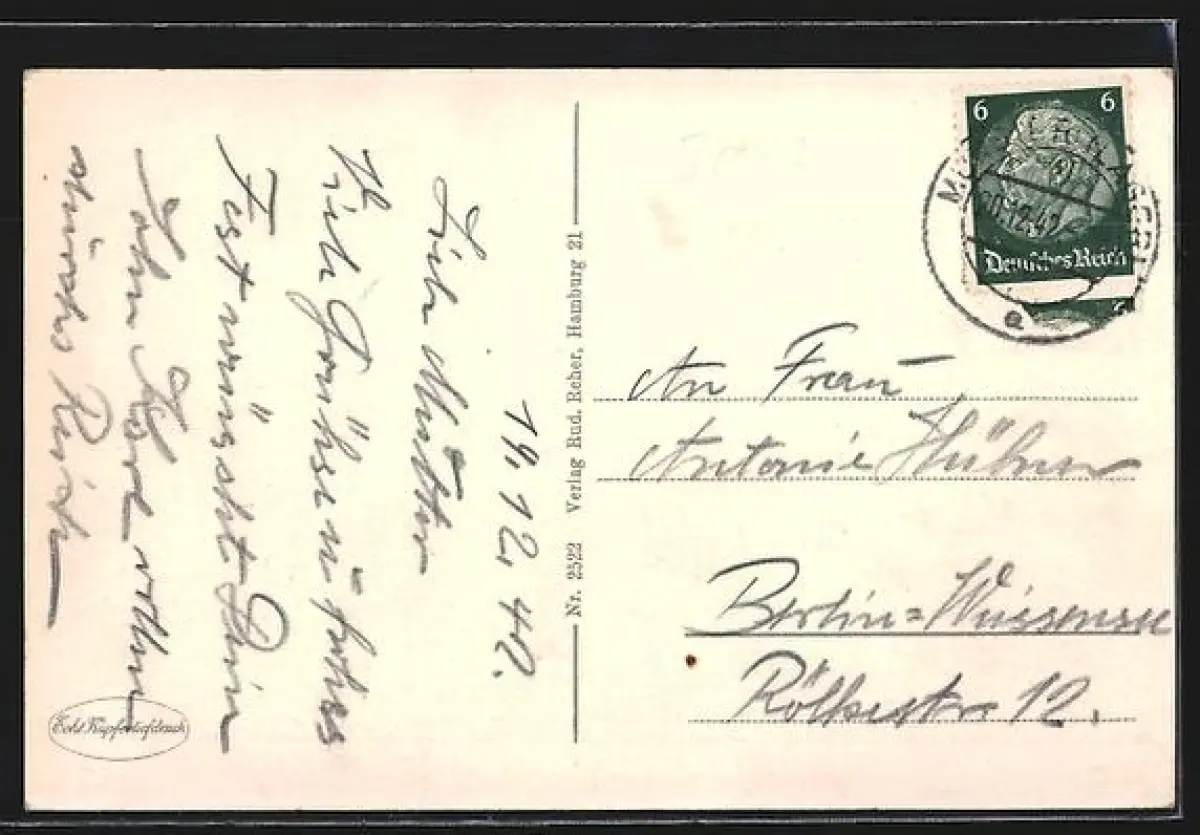 19.12.42.
Liebe Mutter
Viele Grüße u. frohes
Fest wünscht Dein
Sohn
Nr. 2522 Verlag Rud. Reher, Hamburg 21
6 6
20.12.42
Deutsches Reich
e
An Frau
Antonie Hübner
Berlin=Weissensee
Rölkestr. 12.
Echt Kupfertiefdruck